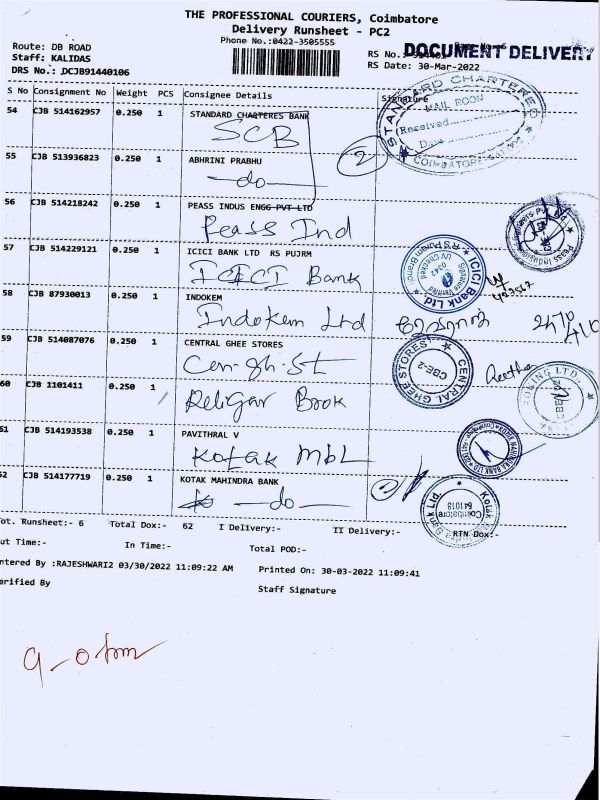 THE PROFESSIONAL COURIERS, Coimbatore
Delivery Runsheet - PC2
Phone No.:0422-3505555
Route: DB ROAD
Staff: KALIDAS
DRS No.: DCJB91440106
RS No.:
DOCUMENT DELIVERY
RS Date: 30-Mar-2022
S No Consignment No Weight PCS Consignee Details Signature
54 CJB 514162957 0.250 1 STANDARD CHARTERES BANK
SCB
STANDARD CHARTERED
MAIL ROOM
Received
Date
COIMBATORE
2
55 CJB 513936823 0.250 1 ABHRINI PRABHU
—do—
56 CJB 514218242 0.250 1 PEASS INDUS ENGG PVT LTD
Peass Ind
57 CJB 514229121 0.250 1 ICICI BANK LTD RS PUJRM
ICICI Bank
ICICI Bank Ltd. RS Puram Branch
Signature Verified
UV Checked
0242
58 CJB 87930013 0.250 1 INDOKEM
Indokem Ltd
59 CJB 514087076 0.250 1 CENTRAL GHEE STORES
Cen.gh.St
CENTRAL GHEE STORES
CBE-2
Geetha
60 CJB 1101411 0.250 1
Religar Brok
61 CJB 514193538 0.250 1 PAVITHRAL V
Kotak MbL
62 CJB 514177719 0.250 1 KOTAK MAHINDRA BANK
—do—
2
Kotak
Bank Ltd.
Coimbatore
641018
Tot. Runsheet:- 6 Total Dox:- 62 I Delivery:- II Delivery:- RTN Dox:-
Out Time:- In Time:- Total POD:-
Entered By :RAJESHWARI2 03/30/2022 11:09:22 AM Printed On: 30-03-2022 11:09:41
Verified By Staff Signature